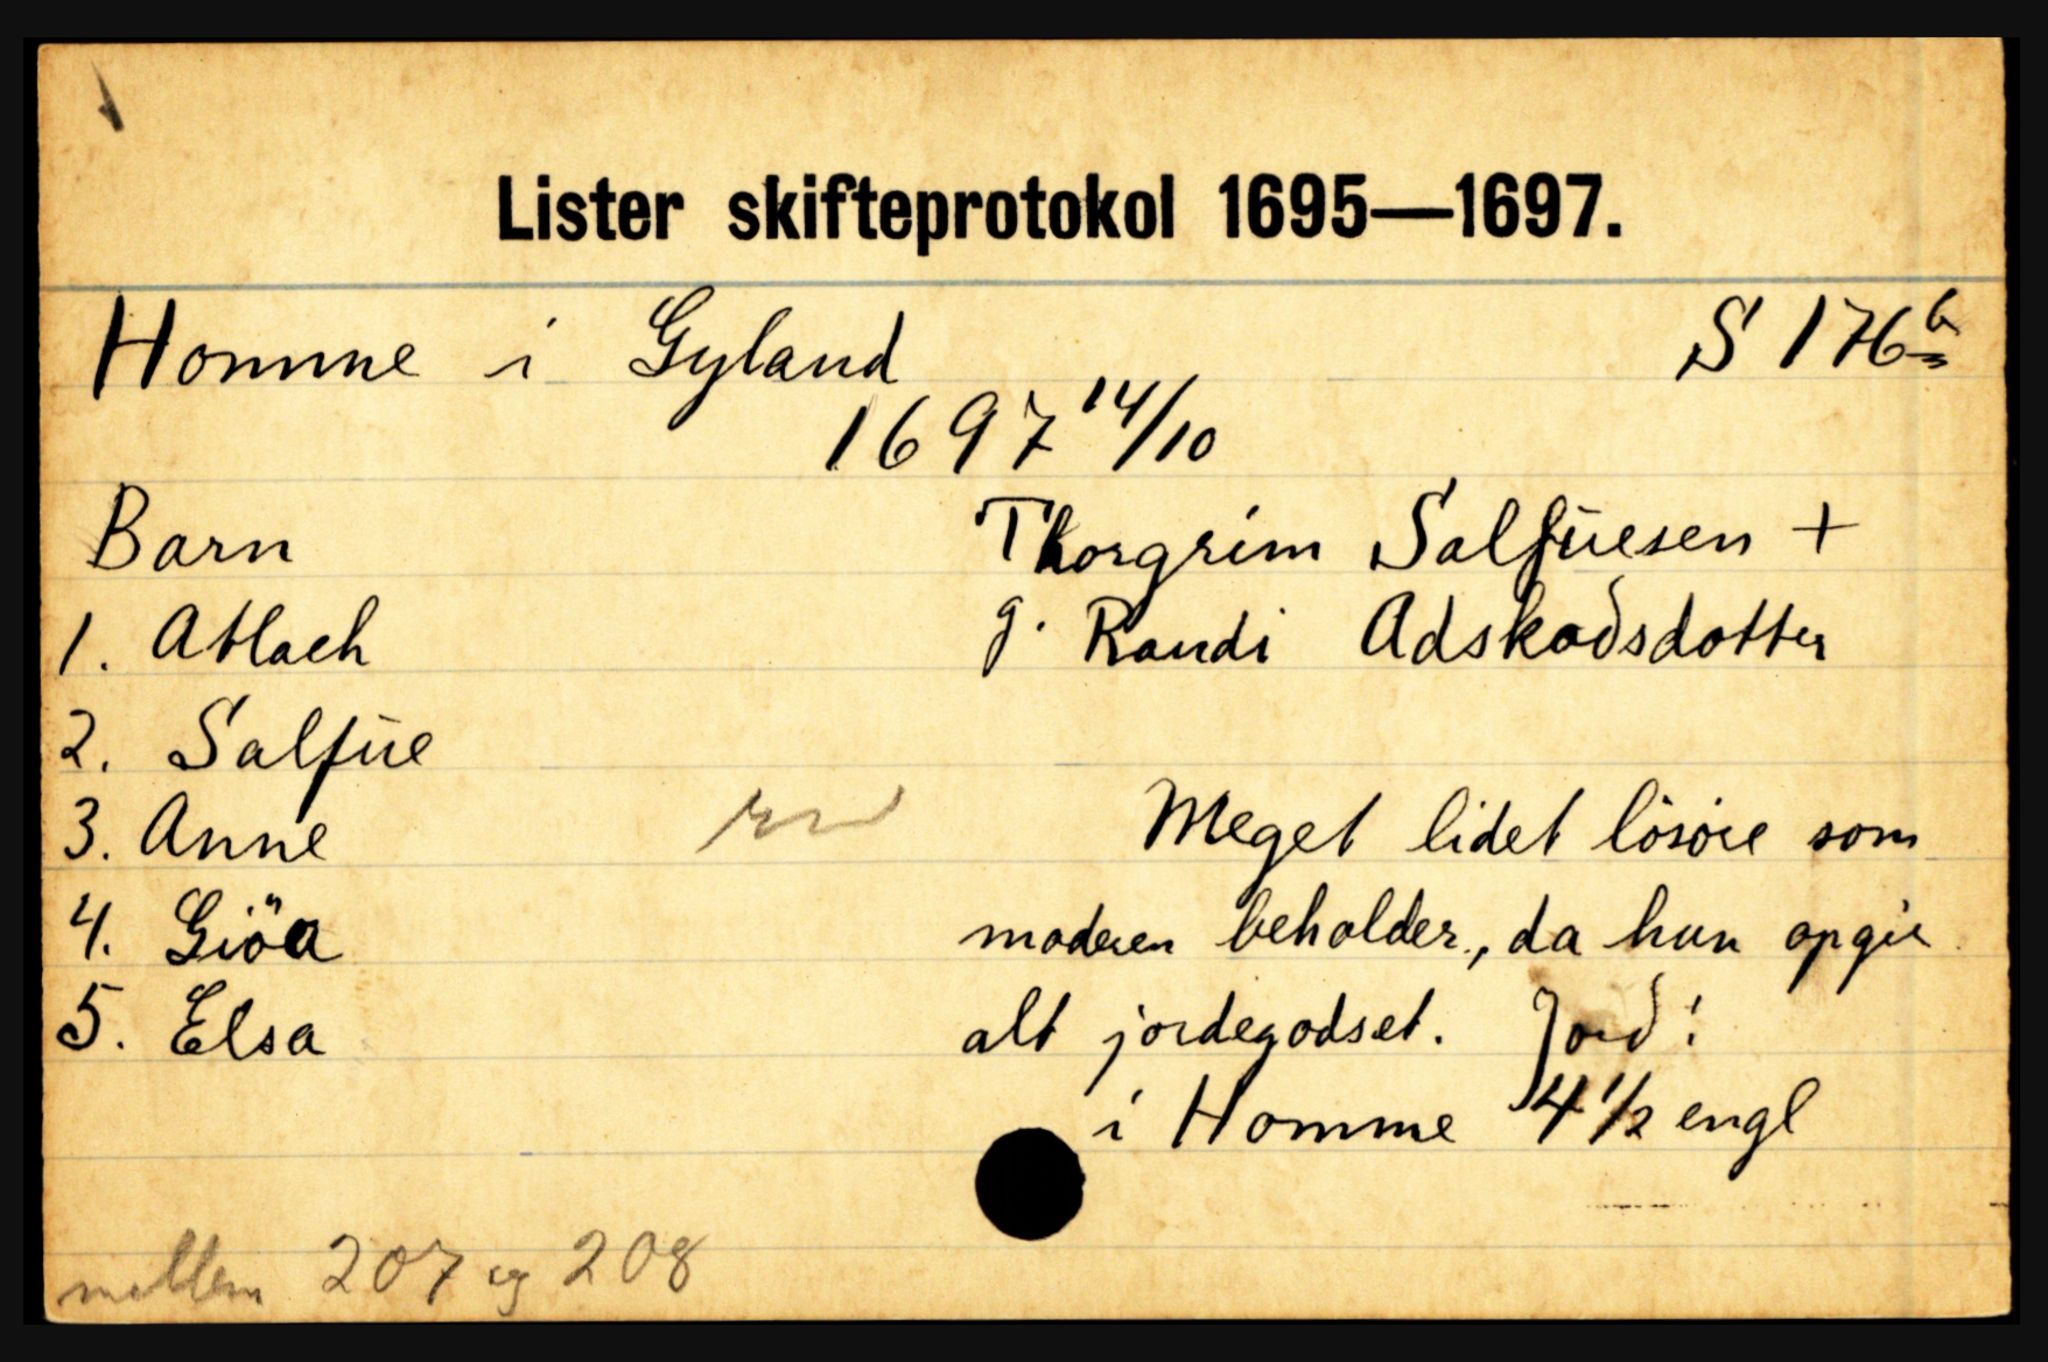 Lister skifteprotokol 1695—1697.
Homme i Gyland S 176b
1697 14/10
Barn Thorgrim Salfüesen +
1. Atlach g. Randi Adskodsdotter
2. Salfüe
3. Anne Meget lidet lösöre som
4. Giöa moderen beholder, da hun opgir
5. Elsa alt jordegodset. Jord:
i Homme 4 1/2 engl
mellem 207 og 208